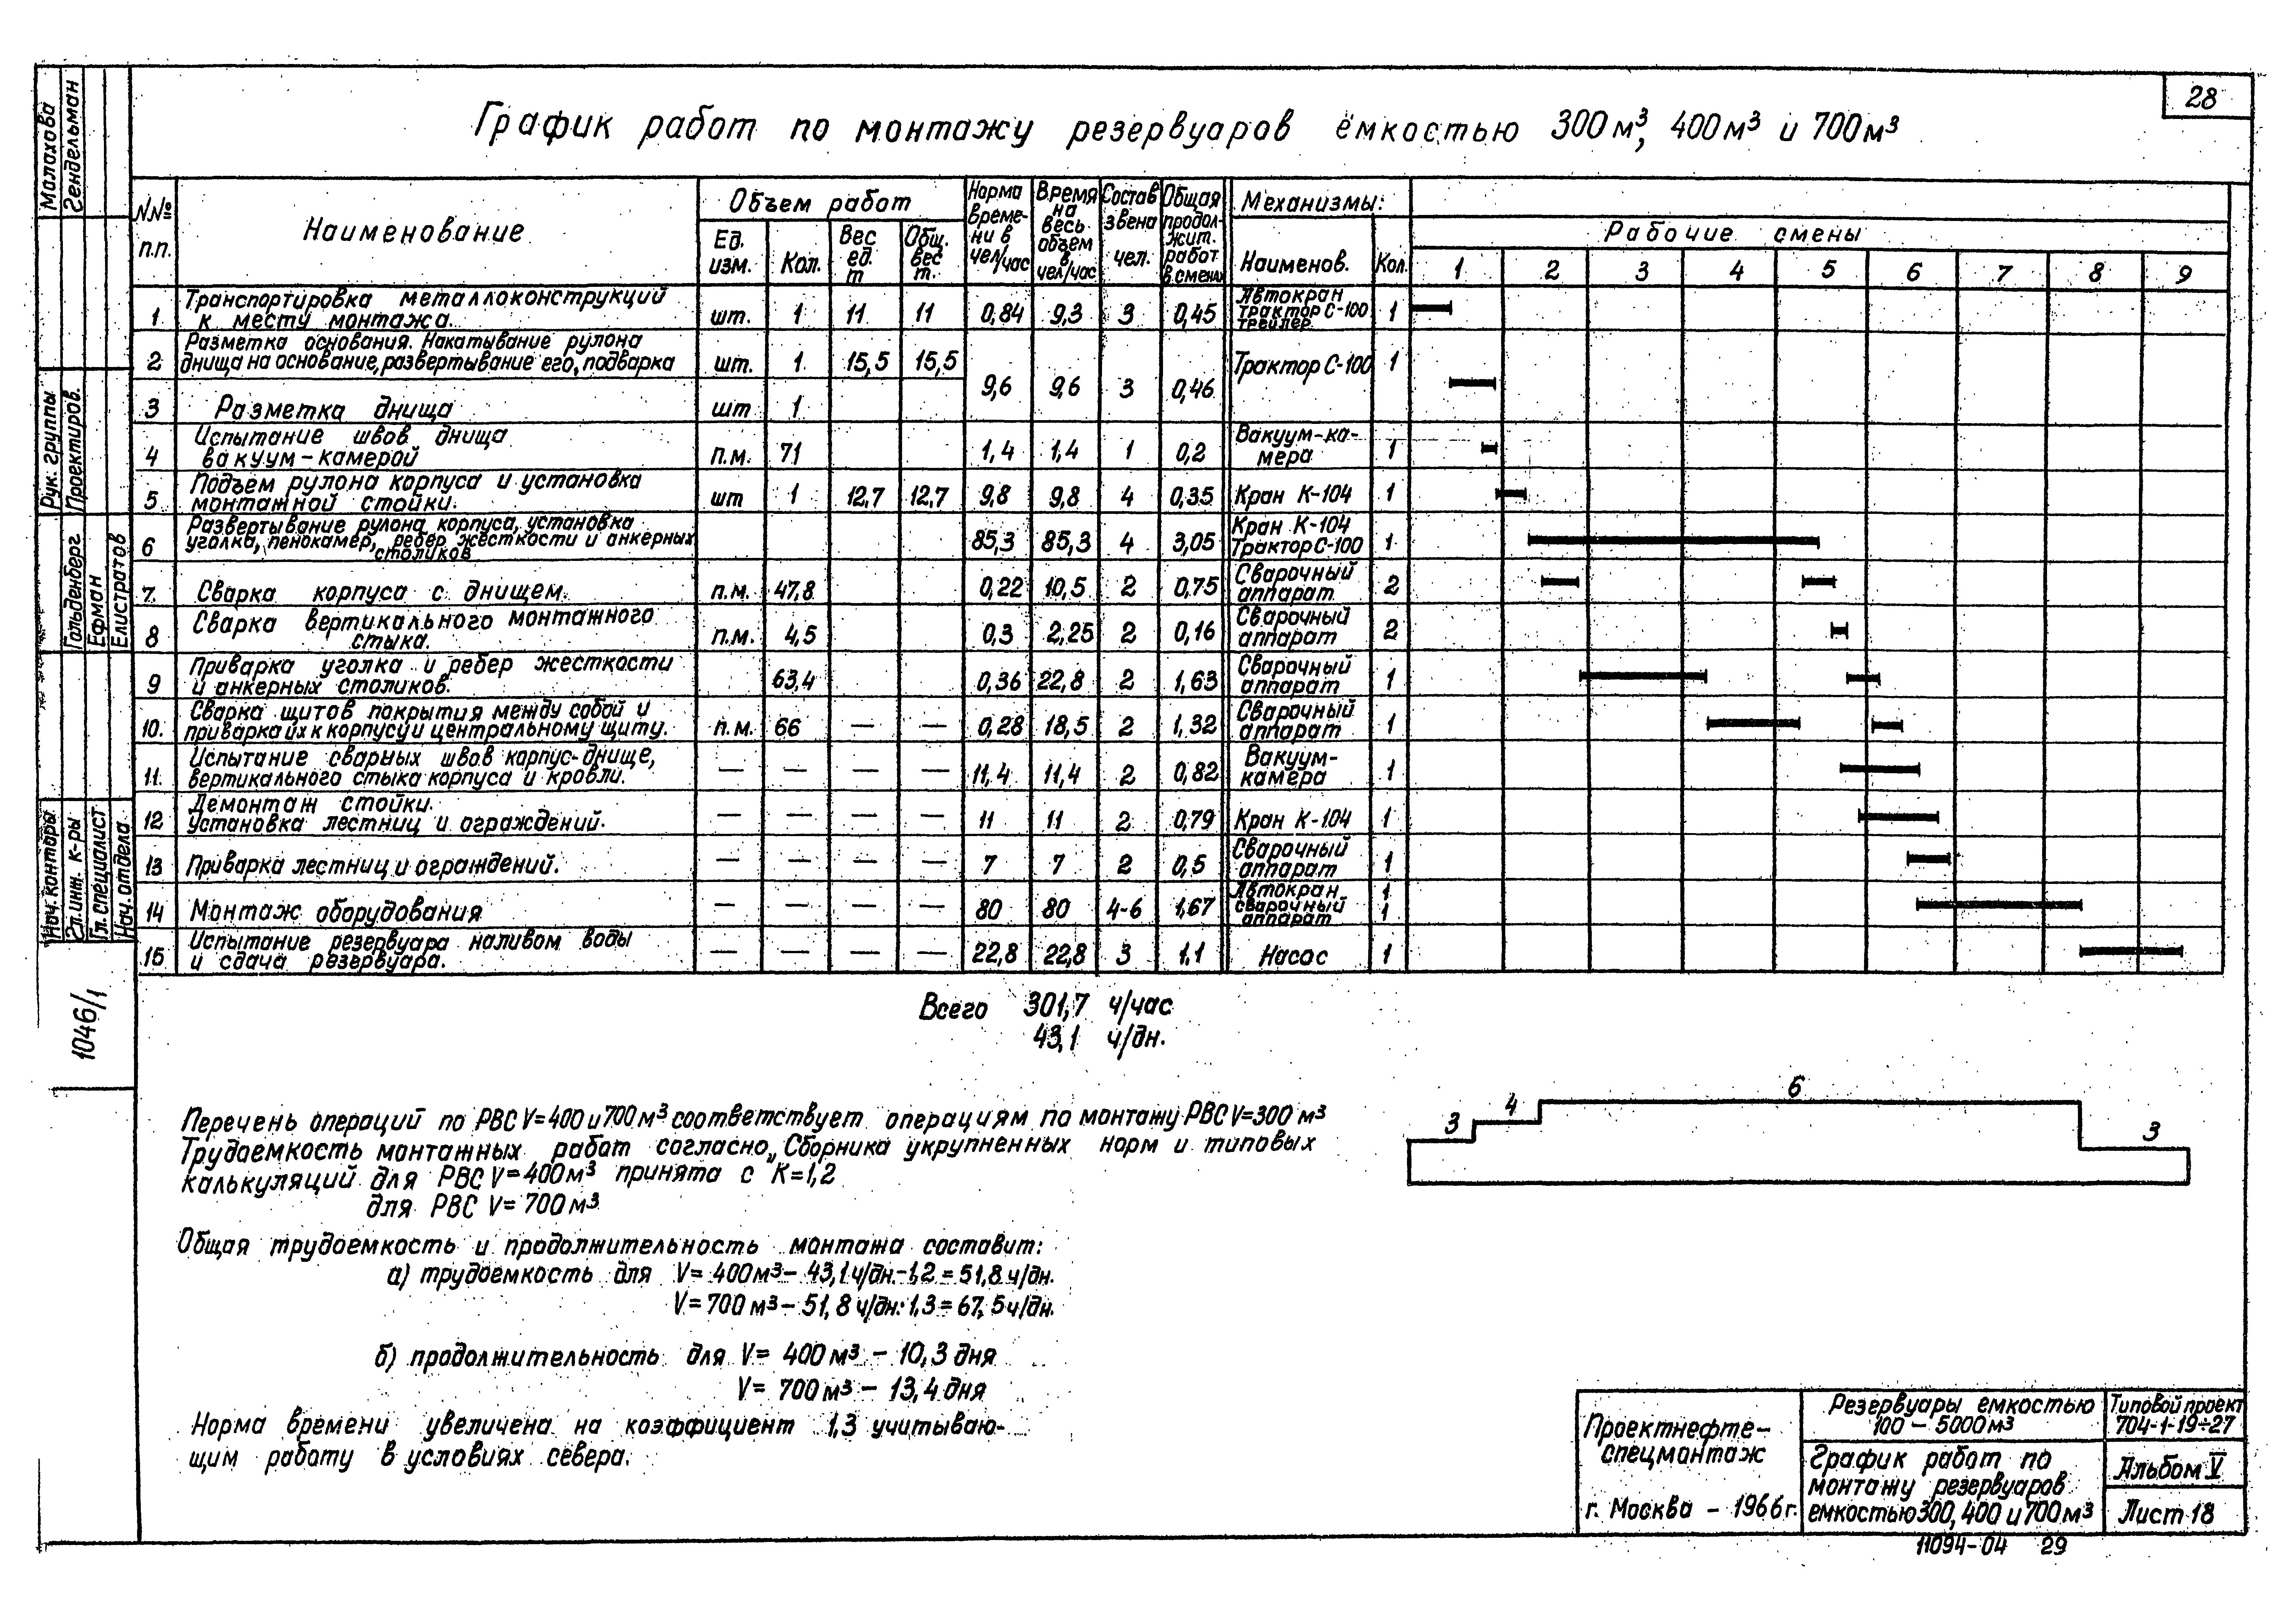 28
График работ по монтажу резервуаров ёмкостью 300м³, 400м³ и 700м³
№№ п.п. Наименование Объем работ Норма време-ни в чел/час Время на весь объем в чел/час Состав звена чел. Общая продол-жит. работ в смены Механизмы: Рабочие смены
Ед. изм. Кол. Вес ед. т Общ. вес т. Наименов. Кол. 1 2 3 4 5 6 7 8 9
1 Транспортировка металлоконструкций к месту монтажа. шт. 1 11 11 0,84 9,3 3 0,45 Автокран трактор С-100 трейлер 1
2 Разметка основания. Накатывание рулона днища на основание, развертывание его, подварка шт. 1 15,5 15,5 9,6 9,6 3 0,46 Трактор С-100 1
3 Разметка днища шт 1
4 Испытание швов днища вакуум-камерой п.м. 71 1,4 1,4 1 0,2 Вакуум-ка-мера 1
5 Подъем рулона корпуса и установка монтажной стойки. шт 1 12,7 12,7 9,8 9,8 4 0,35 Кран К-104 1
6 Развертывание рулона корпуса, установка уголка, пенокамер, ребер жесткости и анкерных столиков 85,3 85,3 4 3,05 Кран К-104 Трактор С-100 1
7. Сварка корпуса с днищем. п.м. 47,8 0,22 10,5 2 0,75 Сварочный аппарат 2
8 Сварка вертикального монтажного стыка. п.м. 4,5 0,3 2,25 2 0,16 Сварочный аппарат 2
9 Приварка уголка и ребер жесткости и анкерных столиков. 63,4 0,36 22,8 2 1,63 Сварочный аппарат 1
10. Сварка щитов покрытия между собой и приварка их к корпусу и центральному щиту. п.м. 66 — — 0,28 18,5 2 1,32 Сварочный аппарат 1
11. Испытание сварных швов корпус-днище, вертикального стыка корпуса и кровли. — — — — 11,4 11,4 2 0,82 Вакуум-камера 1
12 Демонтаж стойки. Установка лестниц и ограждений. — — — — 11 11 2 0,79 Кран К-104 1
13 Приварка лестниц и ограждений. — — — — 7 7 2 0,5 Сварочный аппарат 1
14 Монтаж оборудования — — — — 80 80 4-6 1,67 Автокран 1 сварочный аппарат 1
15 Испытание резервуара наливом воды и сдача резервуара. — — — — 22,8 22,8 3 1,1 Насос 1
Всего 301,7 ч/час
43,1 ч/дн.
3 4 6 3
Перечень операций по РВС V=400 и 700 м³ соответствует операциям по монтажу РВС V=300 м³
Трудоемкость монтажных работ согласно „Сборника укрупненных норм и типовых
калькуляций для РВС V=400м³ принята с К=1,2
для РВС V=700м³
Общая трудоемкость и продолжительность монтажа составит:
а) трудоемкость для V=400м³ – 43,1 ч/дн.-1,2 = 51,8 ч/дн.
V=700м³ – 51,8 ч/дн.·1,3 = 67,5 ч/дн.
б) продолжительность для V= 400м³ – 10,3 дня
V= 700м³ – 13,4 дня
Норма времени увеличена на коэффициент 1,3 учитываю-
щим работу в условиях севера.
Проектнефте-
спецмонтаж
г. Москва – 1966г.
Резервуары емкостью
100 – 5000м³
График работ по
монтажу резервуаров
емкостью 300, 400 и 700м³
Типовой проект
704-1-19÷27
Альбом V
Лист 18
11094-04 29
Малахова
Гендельман
Рук. группы
Проектиров.
Гольденберг
Ефман
Елистратов
Нач. конторы
Гл. инж. к-ры
Гл. специалист
Нач. отдела
1046/1